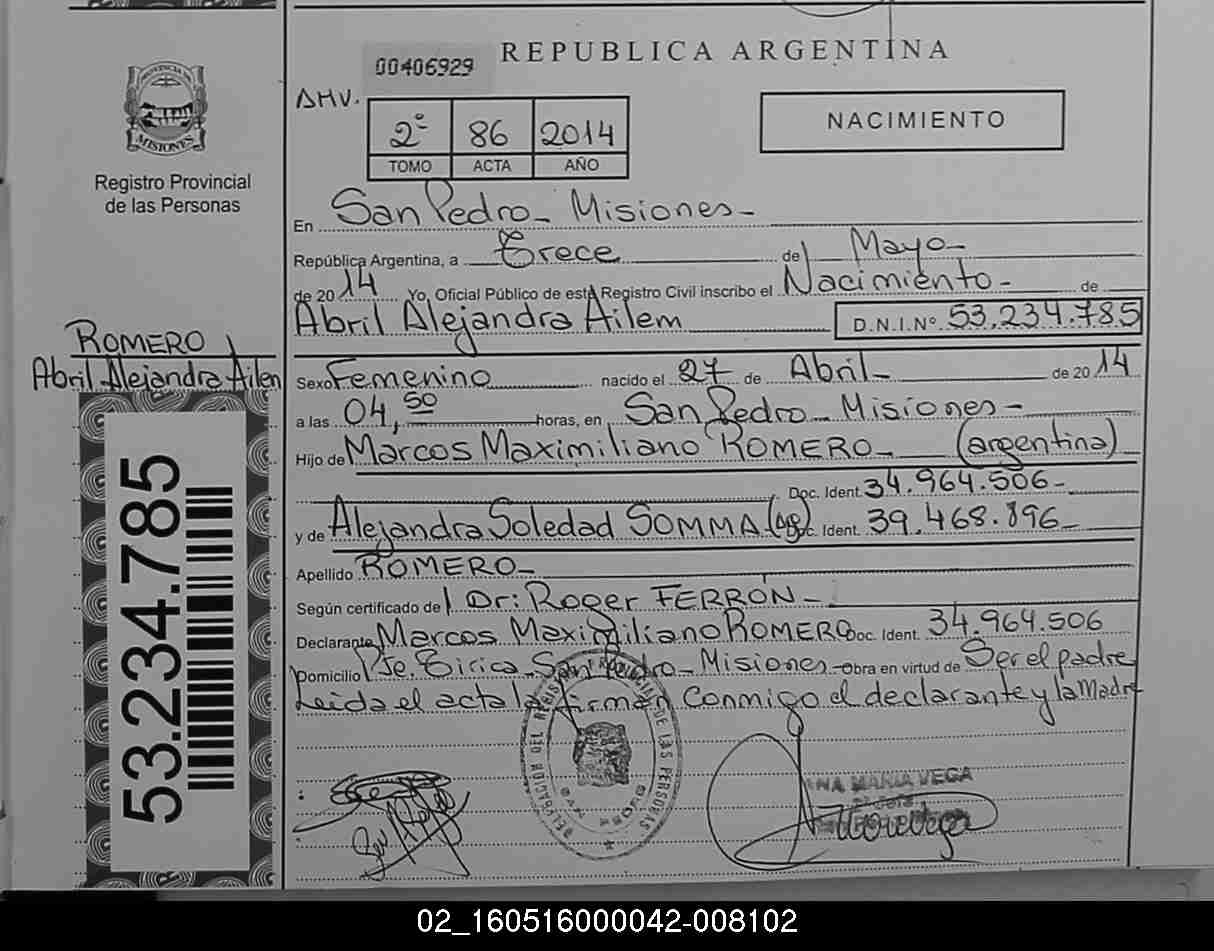 REPUBLICA ARGENTINA
00406929
AMV.
2º 86 2014
TOMO ACTA AÑO
NACIMIENTO
PROVINCIA DE
MISIONES
Registro Provincial
de las Personas
En San Pedro - Misiones -
República Argentina, a Trece de Mayo -
de 2014 Yo, Oficial Público de este Registro Civil inscribo el Nacimiento - de
Abril Alejandra Ailem D.N.I.Nº 53.234.785
ROMERO
Abril Alejandra Ailen
Sexo Femenino nacido el 27 de Abril - de 2014
a las 04,50 horas, en San Pedro - Misiones -
Hijo de Marcos Maximiliano ROMERO - (argentina)
Doc. Ident. 34.964.506 -
y de Alejandra Soledad SOMMA Doc. Ident. 39.468.896 -
Apellido ROMERO -
Según certificado de Dr: Roger FERRON -
Declarante Marcos Maximiliano ROMERO Doc. Ident. 34.964.506
Domicilio Pje. San Pedro - Misiones - Obra en virtud de Ser el padre
Leida el acta la firman conmigo el declarante y la Madre
53.234.785
DELEGACIÓN DEL REGISTRO PROVINCIAL DE LAS PERSONAS
SAN PEDRO
ANA MARIA VEGA
02_160516000042-008102